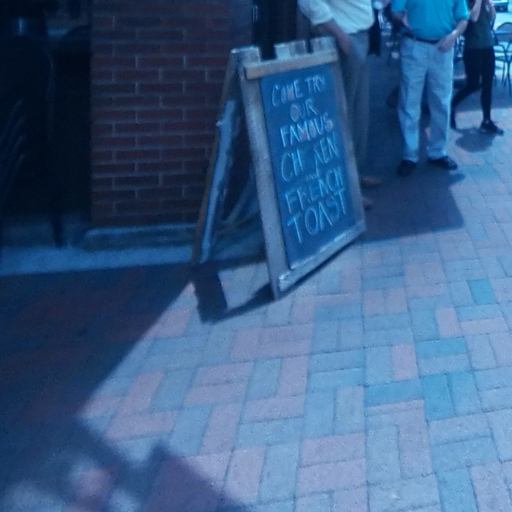 COME TRY
OUR
FAMOUS
CH KEN
AND
FRENCH
TOAST